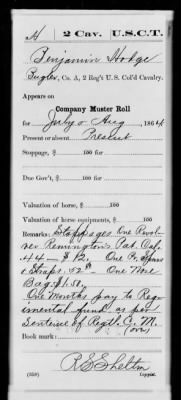 H | 2 Cav. | U.S.C.T.
Benjamin Hodge
Bugler, Co. A, 2 Reg't U.S. Col'd Cavalry.
Appears on
Company Muster Roll
for July & Aug, 1864
Present or absent Present
Stoppage, $ 100 for
Due Gov't, $ 100 for
Valuation of horse, $ 100
Valuation of horse equipments, $ 100
Remarks: Stoppages One Revol-
ver Remington's Pat. Cal.
44 – $12. One Pr. Spurs
& Straps .52 One Nose
Bag $1.58.
One Months pay to Reg-
imental fund as per
Sentence of Regtl. C. M.
Book mark: (over)
R E Shelton
(358) Copyist.